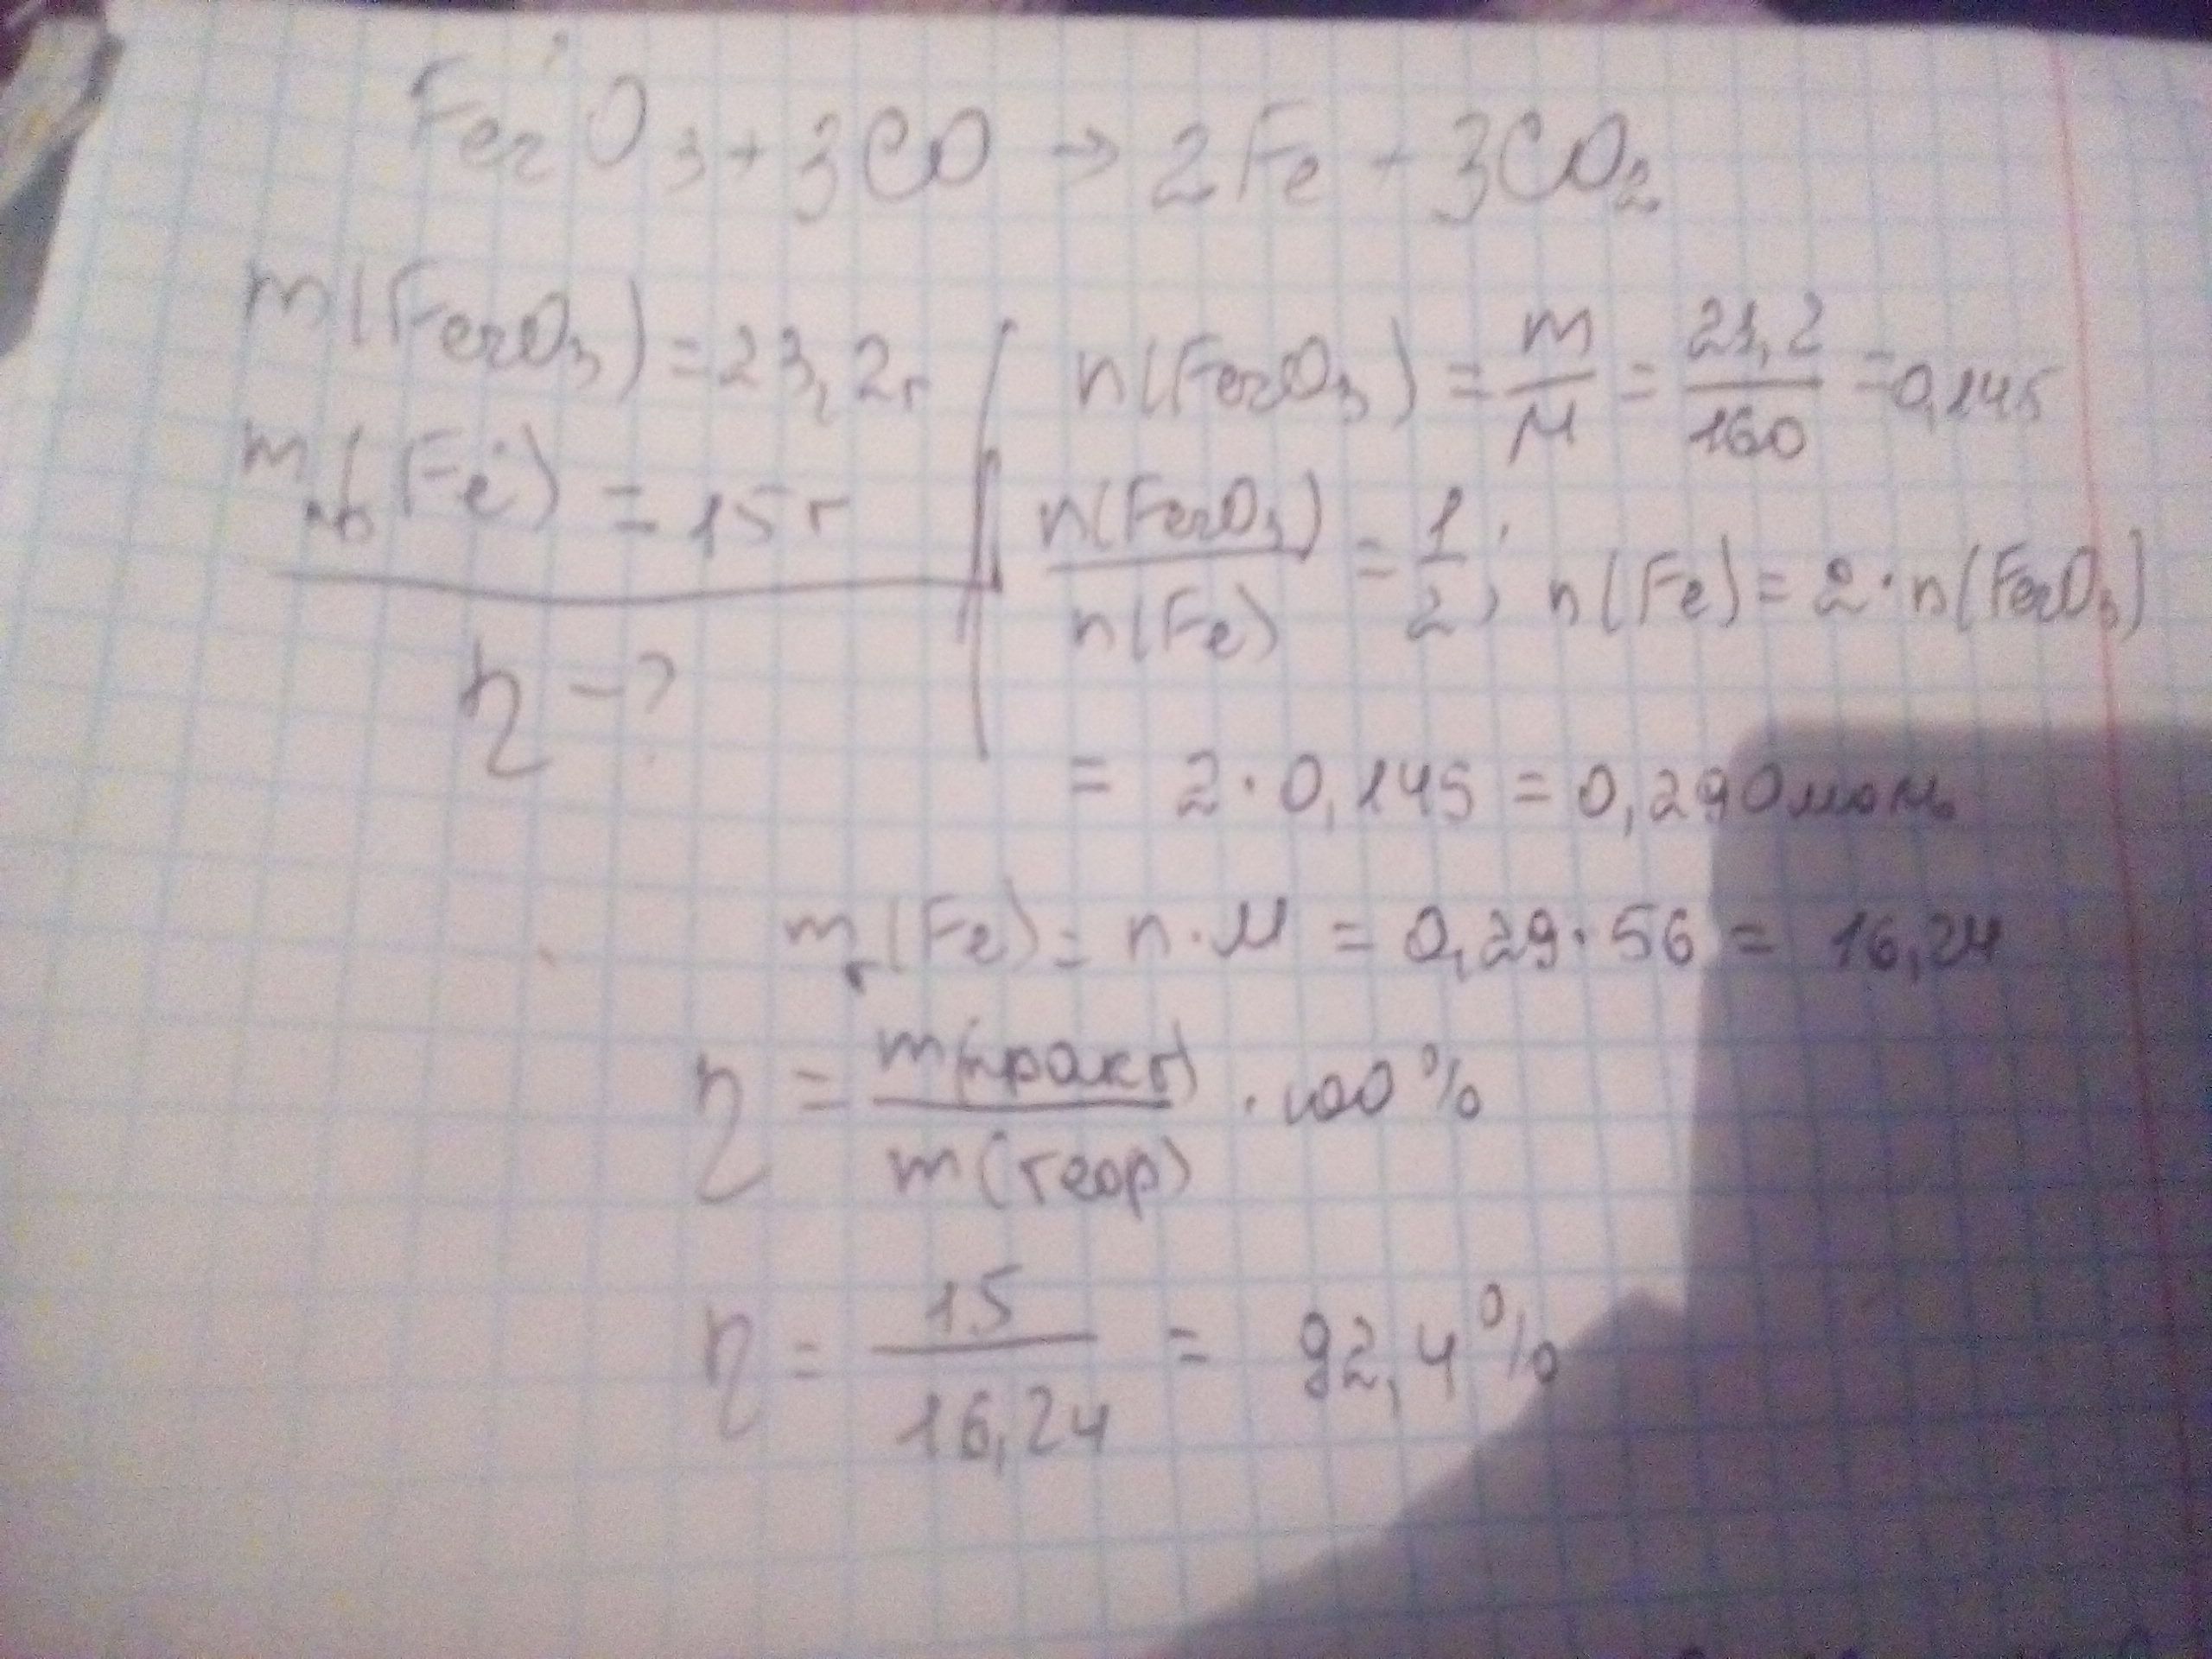 Fe₂O₃ + 3CO → 2Fe + 3CO₂
m(Fe₂O₃) = 23,2г
m пр(Fe) = 15г
η - ?
n(Fe₂O₃) = m/M = 21,2/160 = 0,145
n(Fe₂O₃)/n(Fe) = 1/2; n(Fe) = 2·n(Fe₂O₃)
= 2·0,145 = 0,290моль
mт(Fe) = n·M = 0,29·56 = 16,24
η = m(практ)/m(теор) · 100%
η = 15/16,24 = 92,4%